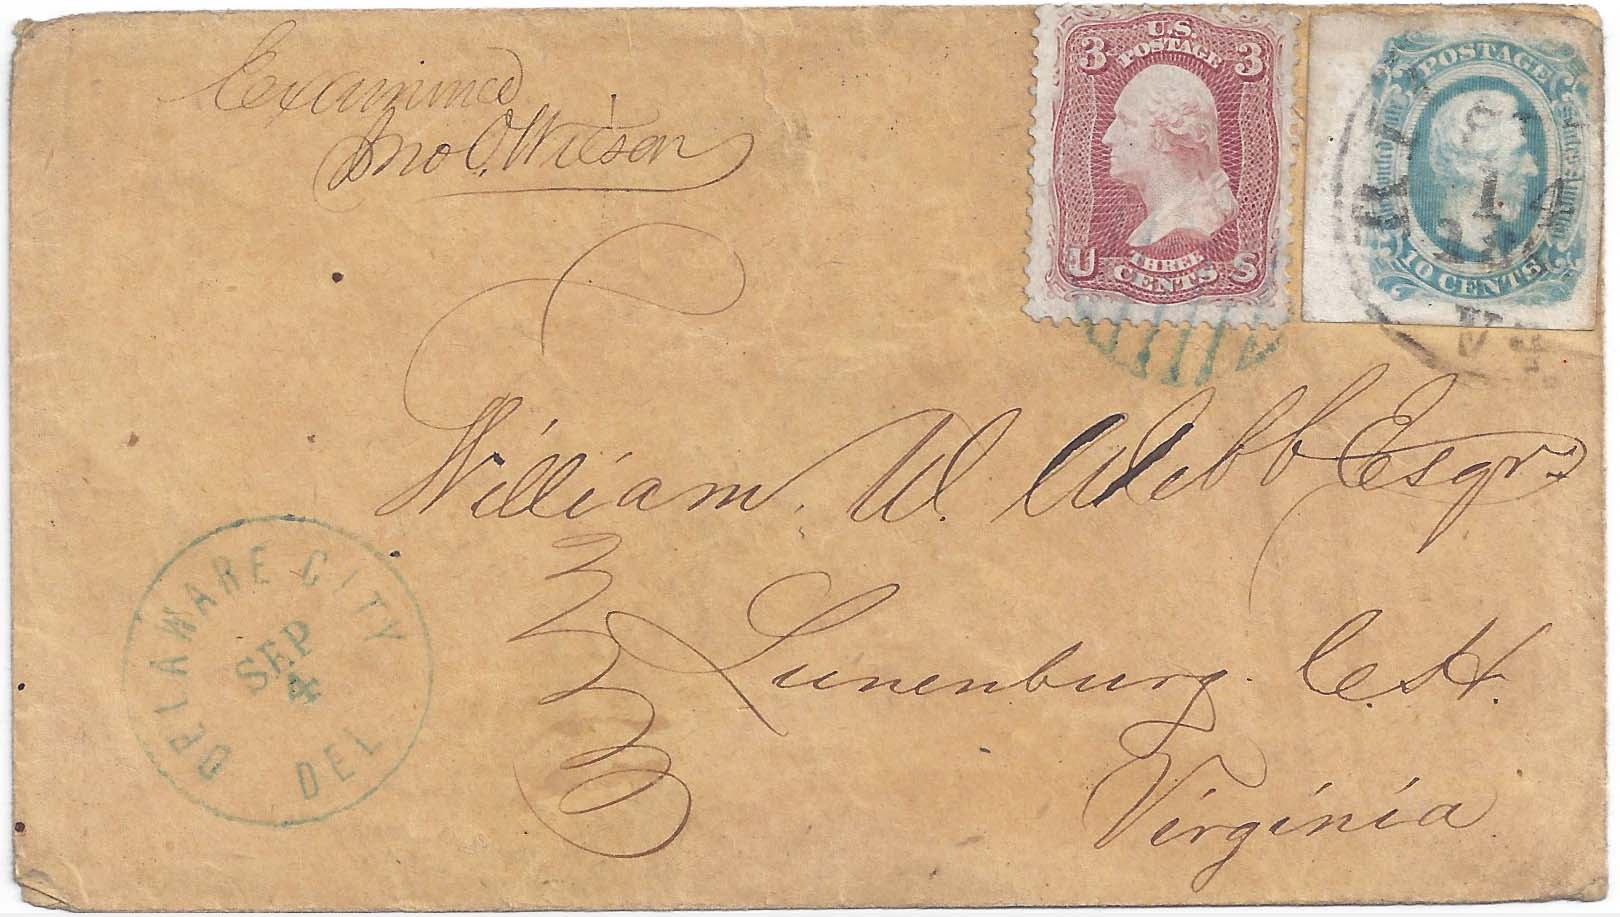 Examined
Jno O. Wilson
U.S.
POSTAGE
3 3
THREE
U CENTS S
POSTAGE
10 CENTS
William W. Webb Esqr.
DELAWARE CITY
SEP
4
DEL
Lunenburg C. H.
Virginia